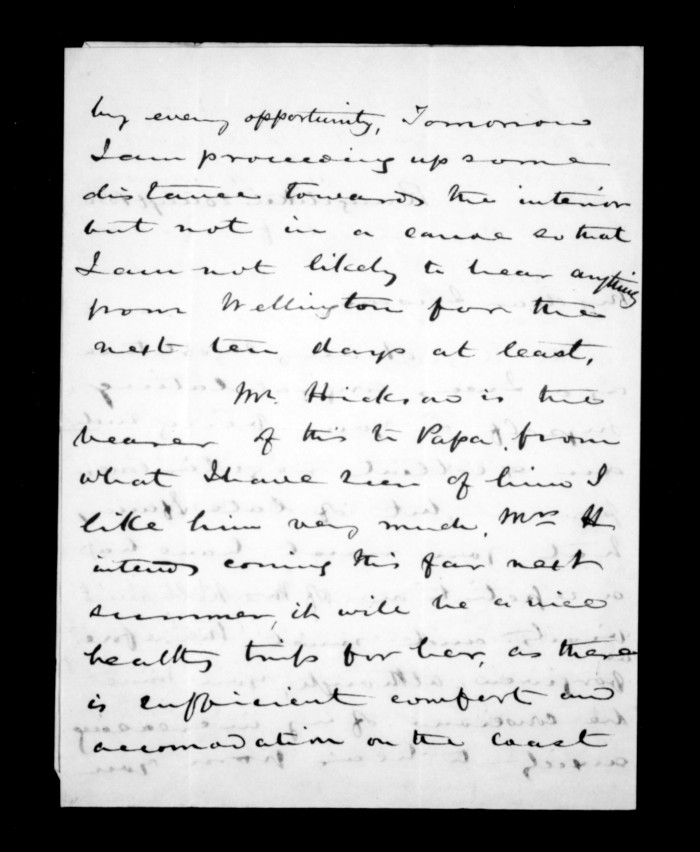 by every opportunity, Tomorrow
I am proceeding up some
distance towards the interior
but not in a canoe so that
I am not likely to hear anything
from Wellington for the
next ten days at least,
Mr. Hickson is the
bearer of this to Papa, from
what I have seen of him I
like him very much, Mrs H
intends coming this far next
summer, it will be a nice
healthy trip for her, as there
is sufficient comfort and
accomodation on the coast